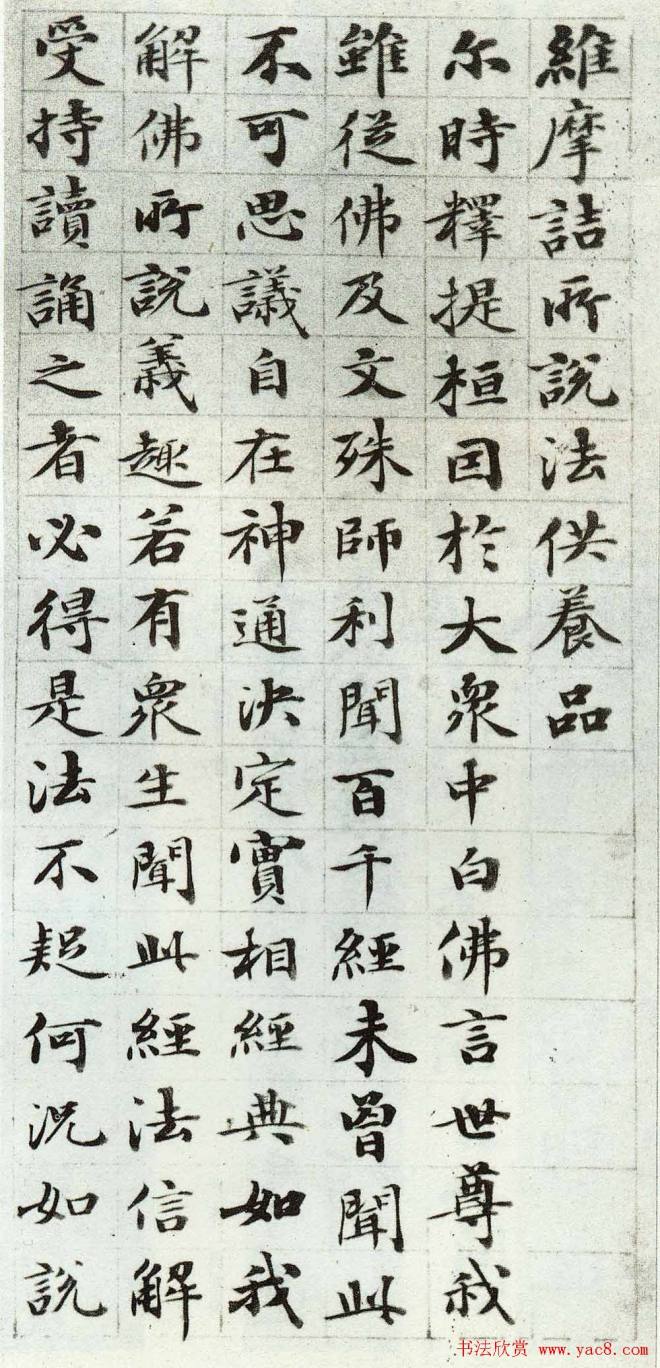 維摩詰所說法供養品
尒時釋提桓因於大衆中白佛言世尊我
雖從佛及文殊師利聞百千經未曾聞此
不可思議自在神通決定實相經典如我
解佛所說義趣若有衆生聞此經法信解
受持讀誦之者必得是法不疑何況如說
书法欣赏 www.yac8.com